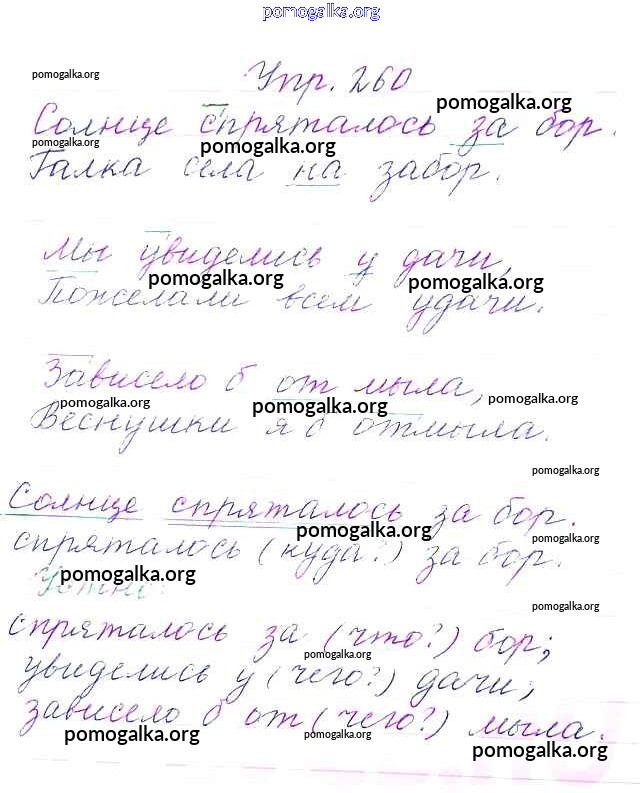 pomogalka.org
Упр. 260
pomogalka.org
pomogalka.org
Солнце спряталось за бор.
pomogalka.org pomogalka.org
Галка села на забор.
Мы увиделись у дачи,
pomogalka.org pomogalka.org
Пожелали всем удачи.
Зависело б от мыла,
pomogalka.org pomogalka.org pomogalka.org
Веснушки я б отмыла.
pomogalka.org
Солнце спряталось за бор.
pomogalka.org pomogalka.org
спряталось (куда?) за бор.
pomogalka.org
Устно:
pomogalka.org
спряталось за (что?) бор;
pomogalka.org
увиделись у (чего?) дачи;
зависело б от (чего?) мыла.
pomogalka.org pomogalka.org pomogalka.org